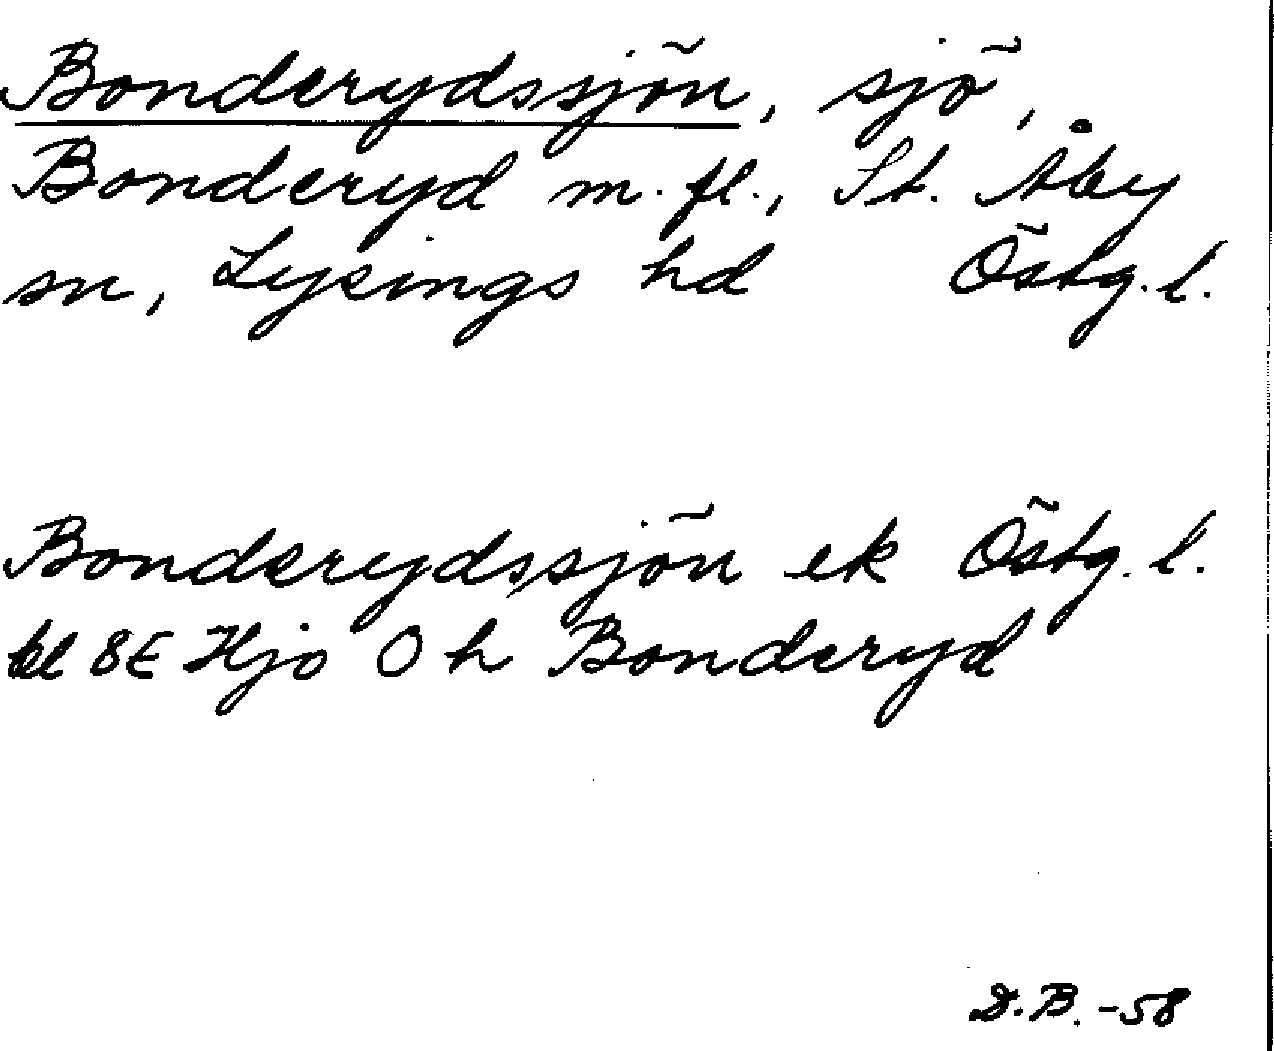 Bonderydssjön, sjö,
Bonderyd m.fl., St. Åby
sn, Lysings hd Östg.l.
Bonderydssjön ek Östg.l.
bl 8E Hjo 0 h Bonderyd
D.B. -58